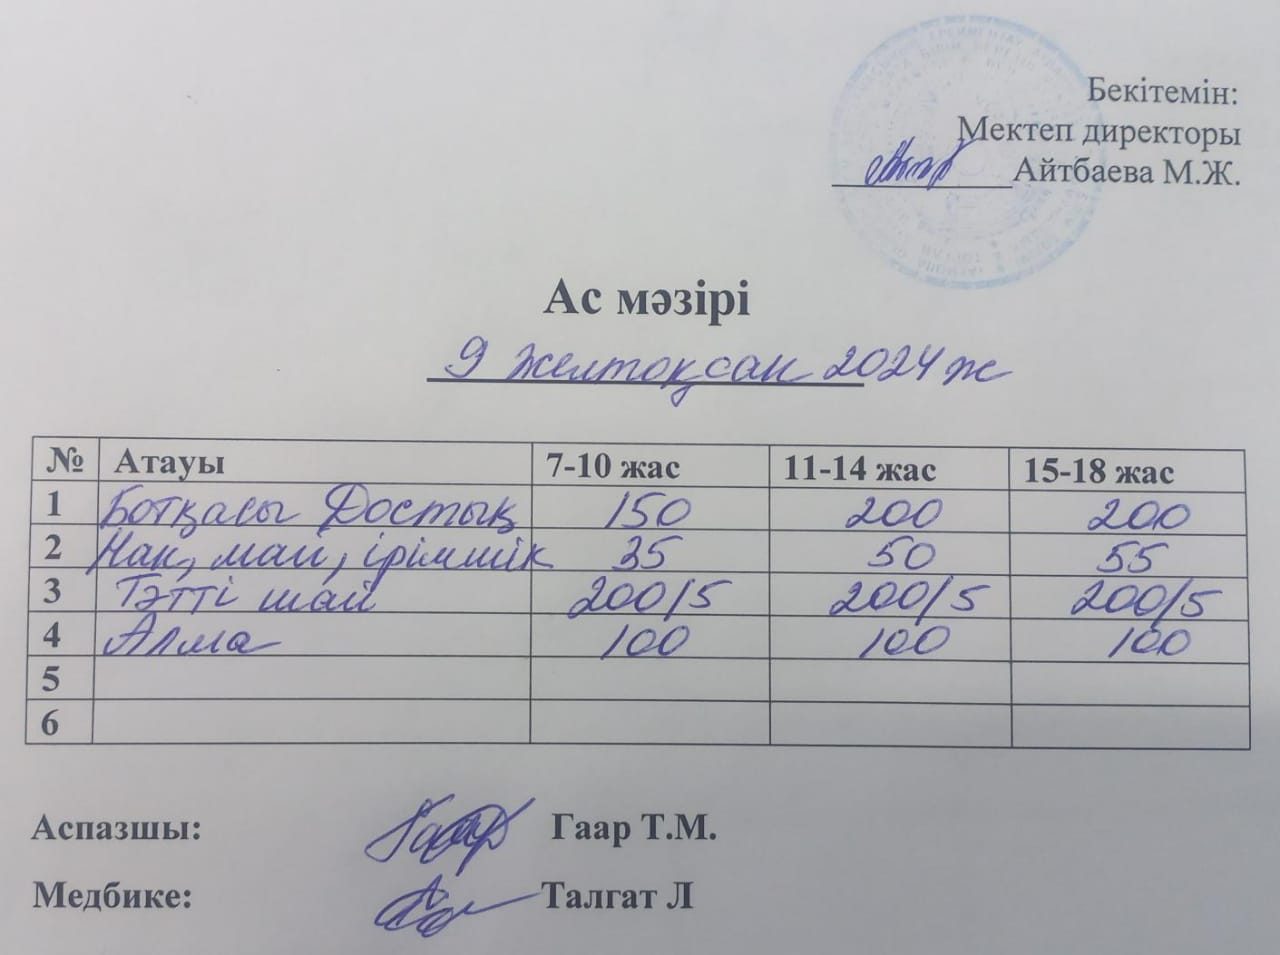 Бекітемін:
Мектеп директоры
Айтбаева М.Ж.
Ас мәзірі
9 желтоқсан 2024 ж
№ Атауы 7-10 жас 11-14 жас 15-18 жас
1 Ботқасы Достық 150 200 200
2 Нан, май, ірімшік 35 50 55
3 Тәтті шай 200/5 200/5 200/5
4 Алма 100 100 100
5
6
Аспазшы: Гаар Т.М.
Медбике: Талгат Л